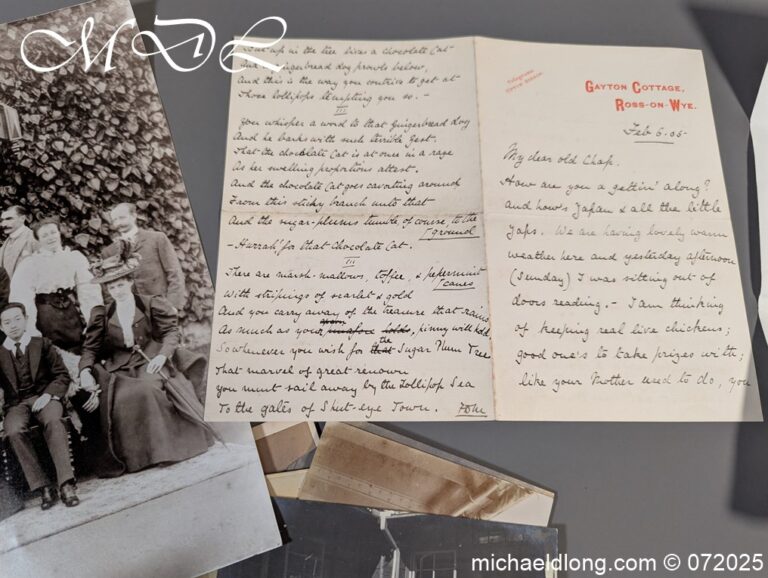 MDL
But up in the tree lives a chocolate Cat
gingerbread dog prowls below,
And this is the way you contrive to get at
Those lollipops tempting you so. –
III
You whisper a word to that gingerbread dog
And he barks with such terrible zest.
That the chocolate Cat is at once in a rage
As her swelling proportions attest.
And the chocolate Cat goes cavorting around
From this sticky branch unto that
And the sugar-plums tumble, of course, to the
ground
– Hurrah! for that Chocolate Cat.
III
There are marsh-mallows, toffee, & peppermint
canes
With stripings of scarlet & gold
And you carry away of the treasure that rains
As much as your pinny will hold.
So whenever you wish for the Sugar Plum Tree
That marvel of great renown
You must sail away by the Lollipop Sea
To the gates of Shut-eye Town.
GAYTON COTTAGE,
ROSS-ON-WYE.
Feb 6. 05.
My dear old Chap.
How are you a gettin' along?
And how's Japan & all the little
Japs. We are having lovely warm
weather here and yesterday afternoon
(Sunday) I was sitting out of
doors reading. – I am thinking
of keeping real live chickens;
good one's to take prizes with;
like your Mother used to do, you
michaeldlong.com © 072025